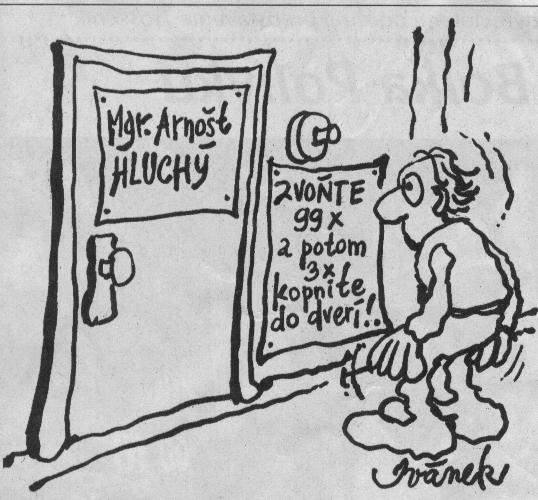 Mgr. Arnošt
HLUCHÝ
ZVOŇTE
99x
a potom
3x
kopnite
do dverí!
Ivánek